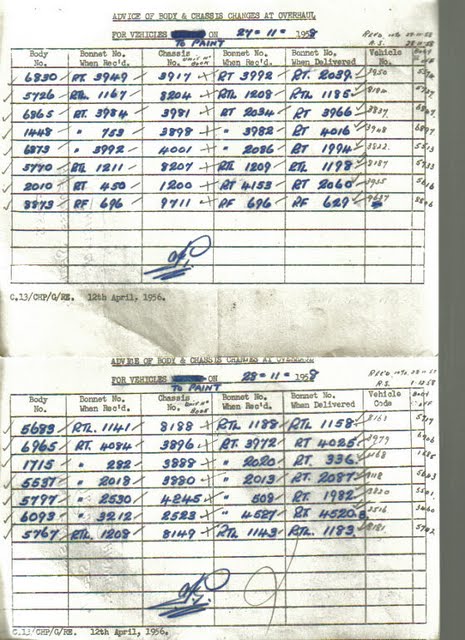 ADVICE OF BODY & CHASSIS CHANGES AT OVERHAUL
FOR VEHICLES ON 27-11-1958
TO PAINT
Body No. Bonnet No. When Rec'd. Chassis No. UNIT No BOOK Bonnet No. When Rec'd. Bonnet No. When Delivered Vehicle No. BODY OFF
6830 RT 3949 3917 RT 3992 RT. 2039. 3950
5726 RTL 1167 8204 RTL 1208 RTL 1185
6865 RT. 3984 3981 RT 2034 RT 3966
1448 " 753 3898 " 3982 RT 4016
6873 " 3992 4001 " 2086 RT 1994
5770 RTL 1211 8207 RTL 1209 RTL 1198 8187
2010 RT 450 1200 RT 4153 RT 2060
8873 RF 696 9711 RF 696 RF 629
C.13/CHP/G/RE. 12th April, 1956.
ADVICE OF BODY & CHASSIS CHANGES AT OVERHAUL
FOR VEHICLES ON 28-11-1958
TO PAINT
Body No. Bonnet No. When Rec'd. Chassis No. UNIT No BOOK Bonnet No. When Rec'd. Bonnet No. When Delivered Vehicle Code BODY OFF
5683 RTL. 1141 8188 RTL 1188 RTL 1158 8161
6965 RT. 4084 3896 RT. 3972 RT 4025 3979
1715 " 282 3888 " 2020 RT. 336
5537 " 2018 3880 " 2013 RT. 2087
5797 " 2530 4245 " 508 RT. 1982
6093 " 3212 2523 " 4527 RT 4520
5767 RTL 1208 8149 RTL 1143 RTL 1183 8181
C.13/CHP/G/RE. 12th April, 1956.